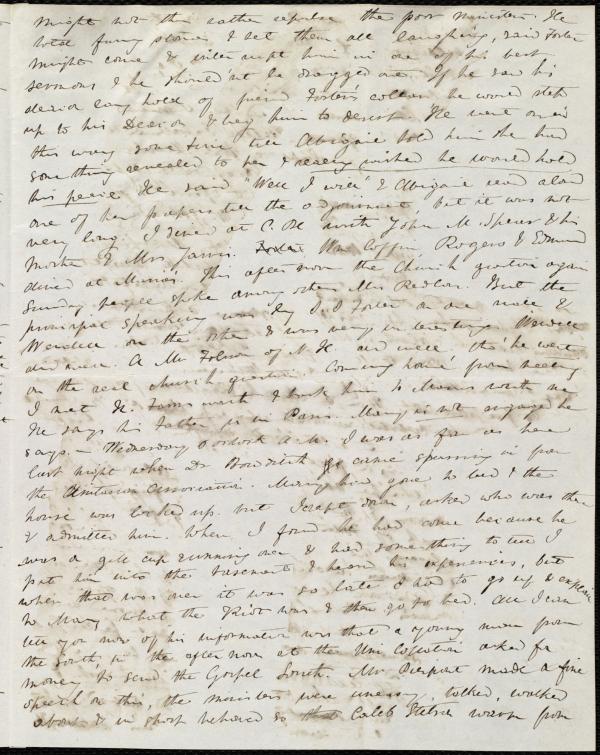 might not this rather repulse the poor ministers. He
told funny stories & set them all laughing, said Foster
might come & interrupt him in one of his best
sermons & he should not be dragged out. If he saw his
deacon lay hold of friend Foster's collar he would step
up to his Deacon & beg him to desist. He went on in
this way some time till Abigail told him she had
something revealed to her & really wished he would hold
his peace. He said "Well I will" & Abigail read aloud
one of her papers till the adjournment, but it was not
very long. I dined at C. St with John M. Spear & his
mother & Mrs Jarvis. Wm Coffin, Rogers & Edmund
dined at Maria's. This afternoon the Church question again
Sunday people spoke among others Mrs Redlon. But the
principal speaking was by S. S. Foster on one side &
Wendell on the other & was very interesting. Wendell
did well. A Mr Folsom of N. H. did well, tho' he went
on the real church question. Coming home from meeting
I met N. & took him to Maria's with me
He says his father is in Paris. Mary is not engaged he
says. — Wednesday o'clock A.M. I was as far as here
last night when Dr Bowditch came spurring in from
the Unitarian Association. Mary had gone to bed & the
house was locked up. but I crept down, asked who was there
& admitted him. When I found he had come because he
was a gill cup running over & had something to tell I
put him into the basement & heard his experiences, but
when that was over it was so late & I had to go up & explain
to Mary what the Riot was & then go to bed. All I can
tell you now of his information was that a young man from
the South, in the afternoon at the Uni Collation asked for
money to send the Gospel South. Mr Pierpont made a fine
speech on this, the ministers were uneasy, talked, walked
about & in short behaved so that Caleb Stetson warm from